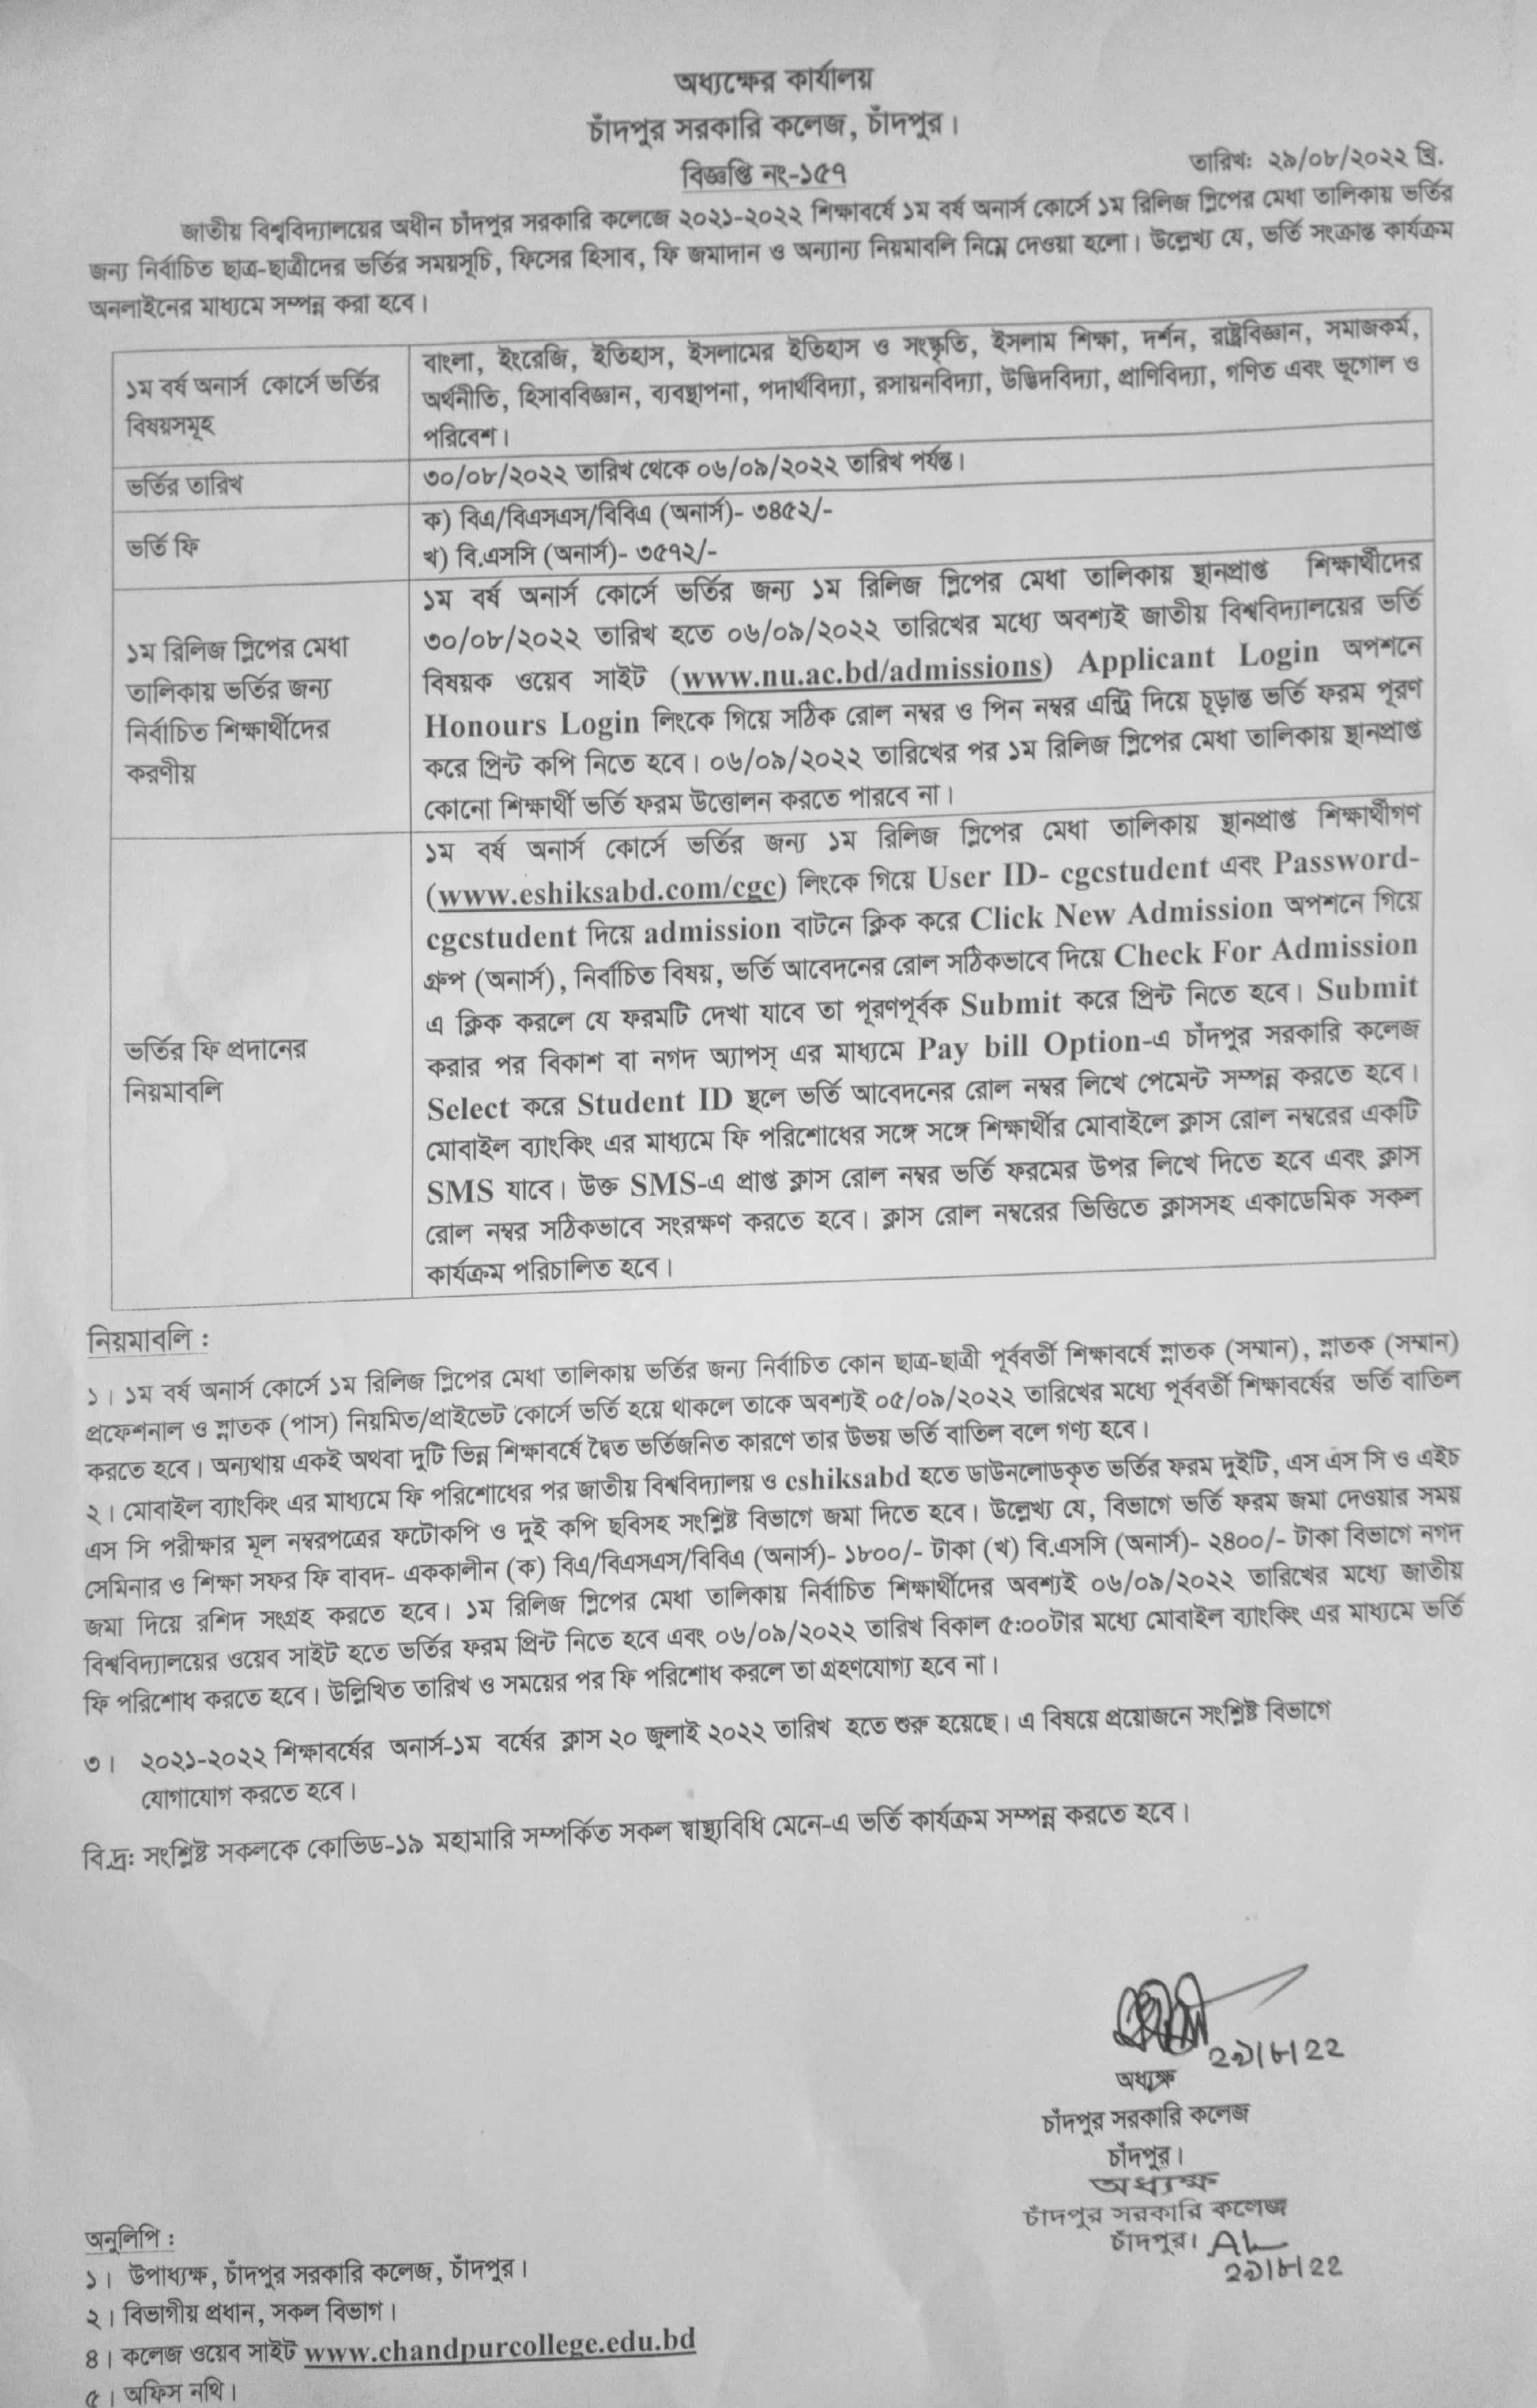 অধ্যক্ষের কার্যালয়
চাঁদপুর সরকারি কলেজ, চাঁদপুর।
বিজ্ঞপ্তি নং-১৫৭
তারিখঃ ২৯/০৮/২০২২ খ্রি.
জাতীয় বিশ্ববিদ্যালয়ের অধীন চাঁদপুর সরকারি কলেজে ২০২১-২০২২ শিক্ষাবর্ষে ১ম বর্ষ অনার্স কোর্সে ১ম রিলিজ স্লিপের মেধা তালিকায় ভর্তির
জন্য নির্বাচিত ছাত্র-ছাত্রীদের ভর্তির সময়সূচি, ফিসের হিসাব, ফি জমাদান ও অন্যান্য নিয়মাবলি নিম্নে দেওয়া হলো। উল্লেখ্য যে, ভর্তি সংক্রান্ত কার্যক্রম
অনলাইনের মাধ্যমে সম্পন্ন করা হবে।
১ম বর্ষ অনার্স কোর্সে ভর্তির
বিষয়সমূহ
বাংলা, ইংরেজি, ইতিহাস, ইসলামের ইতিহাস ও সংস্কৃতি, ইসলাম শিক্ষা, দর্শন, রাষ্ট্রবিজ্ঞান, সমাজকর্ম,
অর্থনীতি, হিসাববিজ্ঞান, ব্যবস্থাপনা, পদার্থবিদ্যা, রসায়নবিদ্যা, উদ্ভিদবিদ্যা, প্রাণিবিদ্যা, গণিত এবং ভূগোল ও
পরিবেশ।
ভর্তির তারিখ
৩০/০৮/২০২২ তারিখ থেকে ০৬/০৯/২০২২ তারিখ পর্যন্ত।
ভর্তি ফি
ক) বিএ/বিএসএস/বিবিএ (অনার্স)- ৩৪৫২/-
খ) বি.এসসি (অনার্স)- ৩৫৭২/-
১ম রিলিজ স্লিপের মেধা
তালিকায় ভর্তির জন্য
নির্বাচিত শিক্ষার্থীদের
করণীয়
১ম বর্ষ অনার্স কোর্সে ভর্তির জন্য ১ম রিলিজ স্লিপের মেধা তালিকায় স্থানপ্রাপ্ত শিক্ষার্থীদের
৩০/০৮/২০২২ তারিখ হতে ০৬/০৯/২০২২ তারিখের মধ্যে অবশ্যই জাতীয় বিশ্ববিদ্যালয়ের ভর্তি
বিষয়ক ওয়েব সাইট (www.nu.ac.bd/admissions) Applicant Login অপশনে
Honours Login লিংকে গিয়ে সঠিক রোল নম্বর ও পিন নম্বর এন্ট্রি দিয়ে চূড়ান্ত ভর্তি ফরম পূরণ
করে প্রিন্ট কপি নিতে হবে। ০৬/০৯/২০২২ তারিখের পর ১ম রিলিজ স্লিপের মেধা তালিকায় স্থানপ্রাপ্ত
কোনো শিক্ষার্থী ভর্তি ফরম উত্তোলন করতে পারবে না।
ভর্তির ফি প্রদানের
নিয়মাবলি
১ম বর্ষ অনার্স কোর্সে ভর্তির জন্য ১ম রিলিজ স্লিপের মেধা তালিকায় স্থানপ্রাপ্ত শিক্ষার্থীগণ
(www.eshiksabd.com/cgc) লিংকে গিয়ে User ID- cgcstudent এবং Password-
cgcstudent দিয়ে admission বাটনে ক্লিক করে Click New Admission অপশনে গিয়ে
গ্রুপ (অনার্স), নির্বাচিত বিষয়, ভর্তি আবেদনের রোল সঠিকভাবে দিয়ে Check For Admission
এ ক্লিক করলে যে ফরমটি দেখা যাবে তা পূরণপূর্বক Submit করে প্রিন্ট নিতে হবে। Submit
করার পর বিকাশ বা নগদ অ্যাপস্ এর মাধ্যমে Pay bill Option-এ চাঁদপুর সরকারি কলেজ
Select করে Student ID স্থলে ভর্তি আবেদনের রোল নম্বর লিখে পেমেন্ট সম্পন্ন করতে হবে।
মোবাইল ব্যাংকিং এর মাধ্যমে ফি পরিশোধের সঙ্গে সঙ্গে শিক্ষার্থীর মোবাইলে ক্লাস রোল নম্বরের একটি
SMS যাবে। উক্ত SMS-এ প্রাপ্ত ক্লাস রোল নম্বর ভর্তি ফরমের উপর লিখে দিতে হবে এবং ক্লাস
রোল নম্বর সঠিকভাবে সংরক্ষণ করতে হবে। ক্লাস রোল নম্বরের ভিত্তিতে ক্লাসসহ একাডেমিক সকল
কার্যক্রম পরিচালিত হবে।
নিয়মাবলি :
১। ১ম বর্ষ অনার্স কোর্সে ১ম রিলিজ স্লিপের মেধা তালিকায় ভর্তির জন্য নির্বাচিত কোন ছাত্র-ছাত্রী পূর্ববর্তী শিক্ষাবর্ষে স্নাতক (সম্মান), স্নাতক (সম্মান)
প্রফেশনাল ও স্নাতক (পাস) নিয়মিত/প্রাইভেট কোর্সে ভর্তি হয়ে থাকলে তাকে অবশ্যই ০৫/০৯/২০২২ তারিখের মধ্যে পূর্ববর্তী শিক্ষাবর্ষের ভর্তি বাতিল
করতে হবে। অন্যথায় একই অথবা দুটি ভিন্ন শিক্ষাবর্ষে দ্বৈত ভর্তিজনিত কারণে তার উভয় ভর্তি বাতিল বলে গণ্য হবে।
২। মোবাইল ব্যাংকিং এর মাধ্যমে ফি পরিশোধের পর জাতীয় বিশ্ববিদ্যালয় ও eshiksabd হতে ডাউনলোডকৃত ভর্তির ফরম দুইটি, এস এস সি ও এইচ
এস সি পরীক্ষার মূল নম্বরপত্রের ফটোকপি ও দুই কপি ছবিসহ সংশ্লিষ্ট বিভাগে জমা দিতে হবে। উল্লেখ্য যে, বিভাগে ভর্তি ফরম জমা দেওয়ার সময়
সেমিনার ও শিক্ষা সফর ফি বাবদ- এককালীন (ক) বিএ/বিএসএস/বিবিএ (অনার্স)- ১৮০০/- টাকা (খ) বি.এসসি (অনার্স)- ২৪০০/- টাকা বিভাগে নগদ
জমা দিয়ে রশিদ সংগ্রহ করতে হবে। ১ম রিলিজ স্লিপের মেধা তালিকায় নির্বাচিত শিক্ষার্থীদের অবশ্যই ০৬/০৯/২০২২ তারিখের মধ্যে জাতীয়
বিশ্ববিদ্যালয়ের ওয়েব সাইট হতে ভর্তির ফরম প্রিন্ট নিতে হবে এবং ০৬/০৯/২০২২ তারিখ বিকাল ৫:০০টার মধ্যে মোবাইল ব্যাংকিং এর মাধ্যমে ভর্তি
ফি পরিশোধ করতে হবে। উল্লিখিত তারিখ ও সময়ের পর ফি পরিশোধ করলে তা গ্রহণযোগ্য হবে না।
৩। ২০২১-২০২২ শিক্ষাবর্ষের অনার্স-১ম বর্ষের ক্লাস ২০ জুলাই ২০২২ তারিখ হতে শুরু হয়েছে। এ বিষয়ে প্রয়োজনে সংশ্লিষ্ট বিভাগে
যোগাযোগ করতে হবে।
বি.দ্র: সংশ্লিষ্ট সকলকে কোভিড-১৯ মহামারি সম্পর্কিত সকল স্বাস্থ্যবিধি মেনে-এ ভর্তি কার্যক্রম সম্পন্ন করতে হবে।
২৯/৮/২২
অধ্যক্ষ
চাঁদপুর সরকারি কলেজ
চাঁদপুর।
অধ্যক্ষ
চাঁদপুর সরকারি কলেজ
চাঁদপুর।
২৯/৮/২২
অনুলিপি :
১। উপাধ্যক্ষ, চাঁদপুর সরকারি কলেজ, চাঁদপুর।
২। বিভাগীয় প্রধান, সকল বিভাগ।
৪। কলেজ ওয়েব সাইট www.chandpurcollege.edu.bd
৫। অফিস নথি।